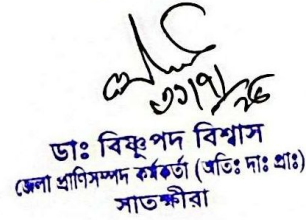 ৩১/৭/২৫
ডাঃ বিষ্ণুপদ বিশ্বাস
জেলা প্রাণিসম্পদ কর্মকর্তা (অতিঃ দাঃ প্রাঃ)
সাতক্ষীরা